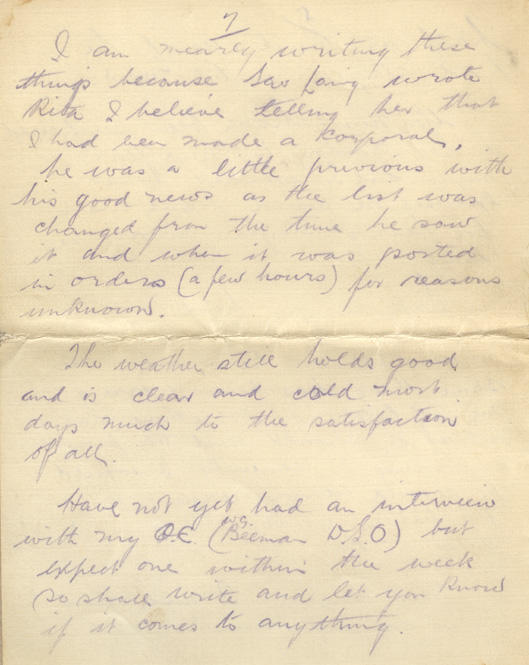 7
I am mearly writing these
things because Lav wrote
Rita I believe telling her that
I had been made a Korporal,
he was a little previous with
his good news as the list was
changed from the time he saw
it and when it was posted
in orders (a few hours) for reasons
unknown.
The weather still holds good
and is clear and cold most
days much to the satisfaction
of all.
Have not yet had an interview
with my O.C. (W.G. Beeman D.S.O) but
expect one within the week
so shall write and let you know
if it comes to anything.